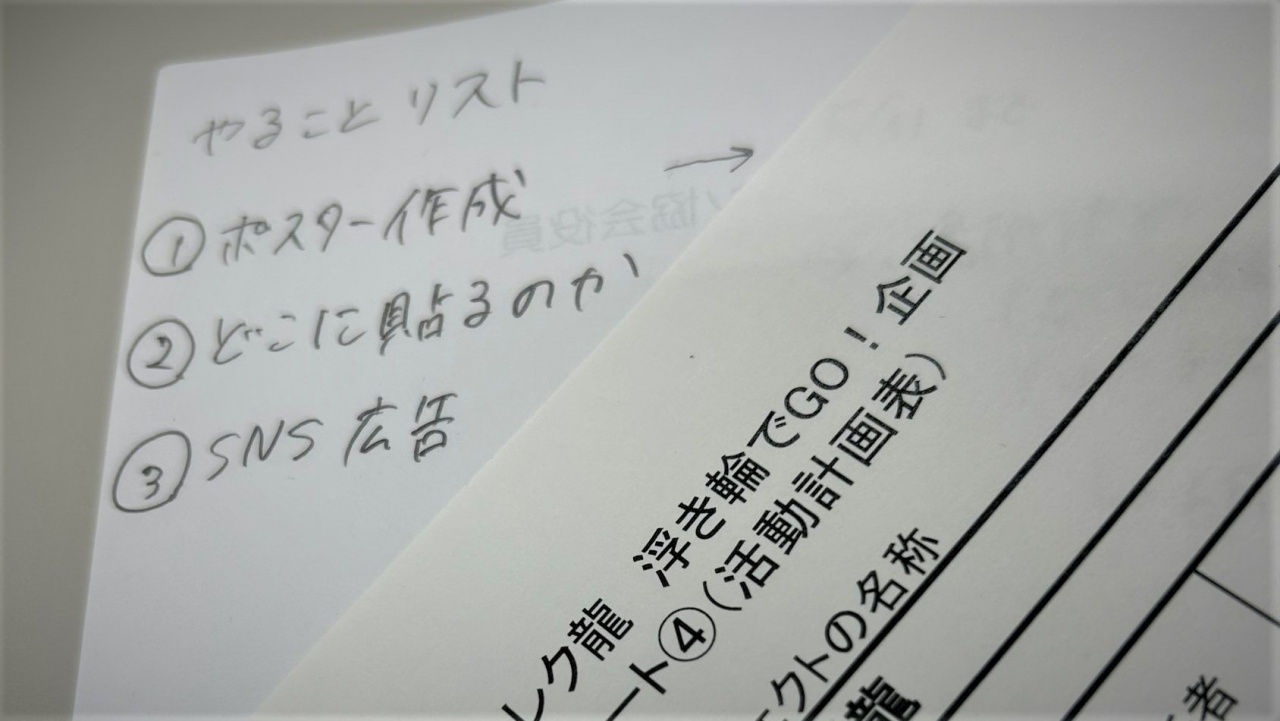 やることリスト
① ポスター作成 →
② どこに貼るのか
③ SNS 広告
レク龍 浮き輪でGO！企画
ート④（活動計画表）
クトの名称
龍
者